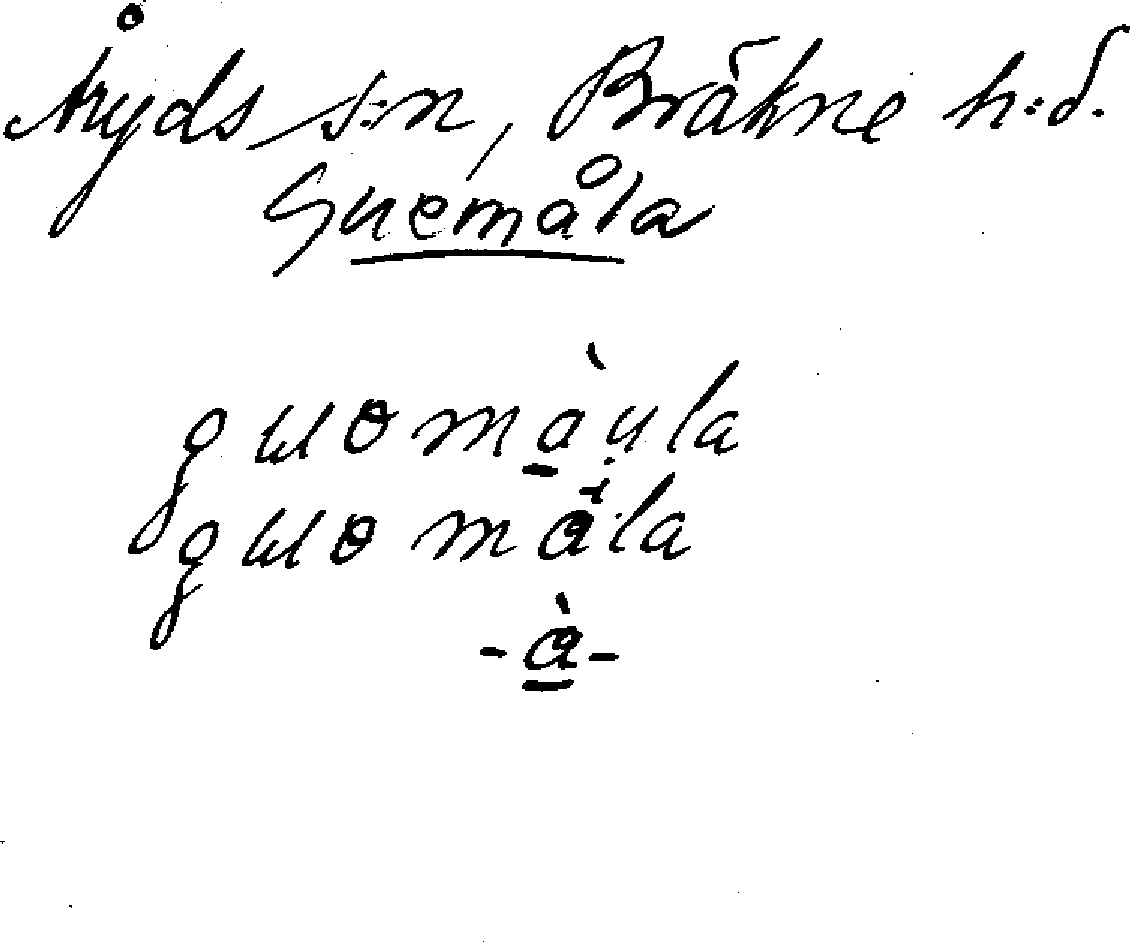 Åryds s:n, Bräkne h:d.
Guemåla
guɵmàu̯la
guɵmàla
-à-